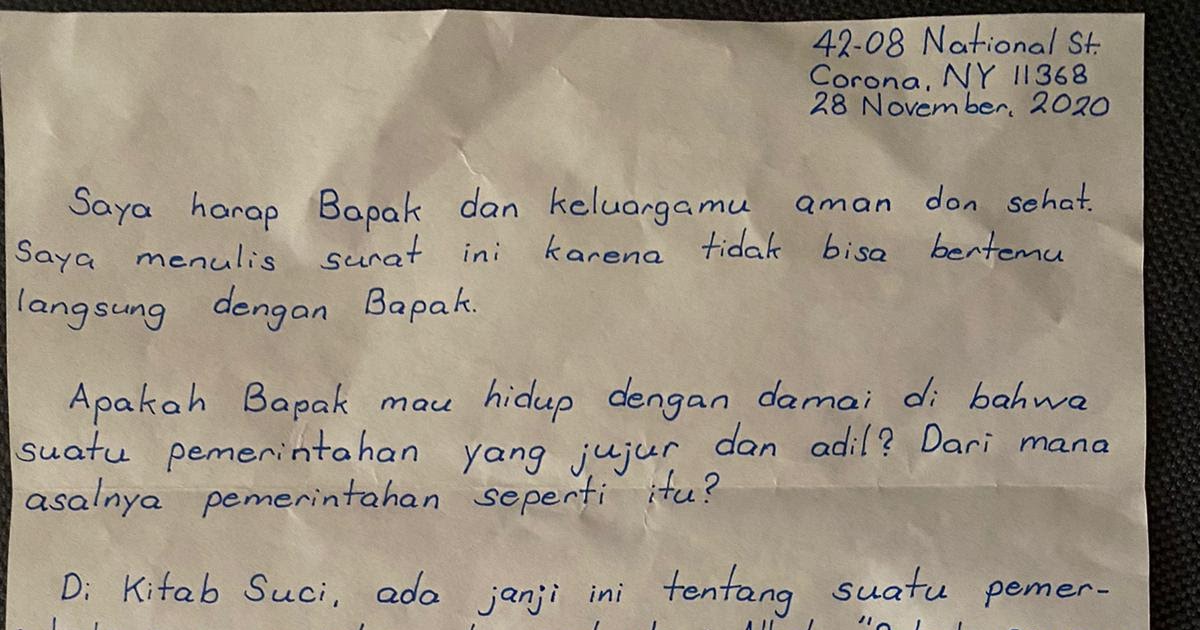 42-08 National St.
Corona, NY 11368
28 November, 2020
Saya harap Bapak dan keluargamu aman dan sehat.
Saya menulis surat ini karena tidak bisa bertemu
langsung dengan Bapak.
Apakah Bapak mau hidup dengan damai di bahwa
suatu pemerintahan yang jujur dan adil? Dari mana
asalnya pemerintahan seperti itu?
Di Kitab Suci, ada janji ini tentang suatu pemer-